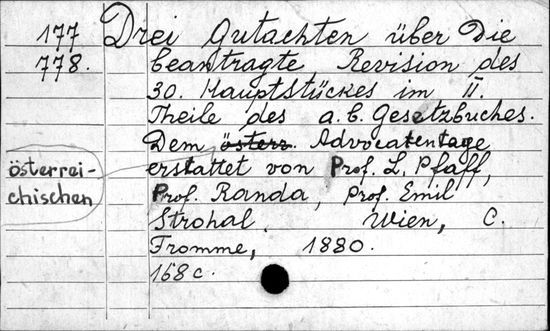 177 Drei Gutachten über die
778. beantragte Revision des
30. Hauptstückes im II.
Theile des a. b. Gesetzbuches.
Dem österr. Advocatentage
österrei-
chischen
erstattet von Prof. L. Pfaff,
Prof. Randa, Prof. Emil
Strohal. Wien, C.
Fromme, 1880.
168 c.